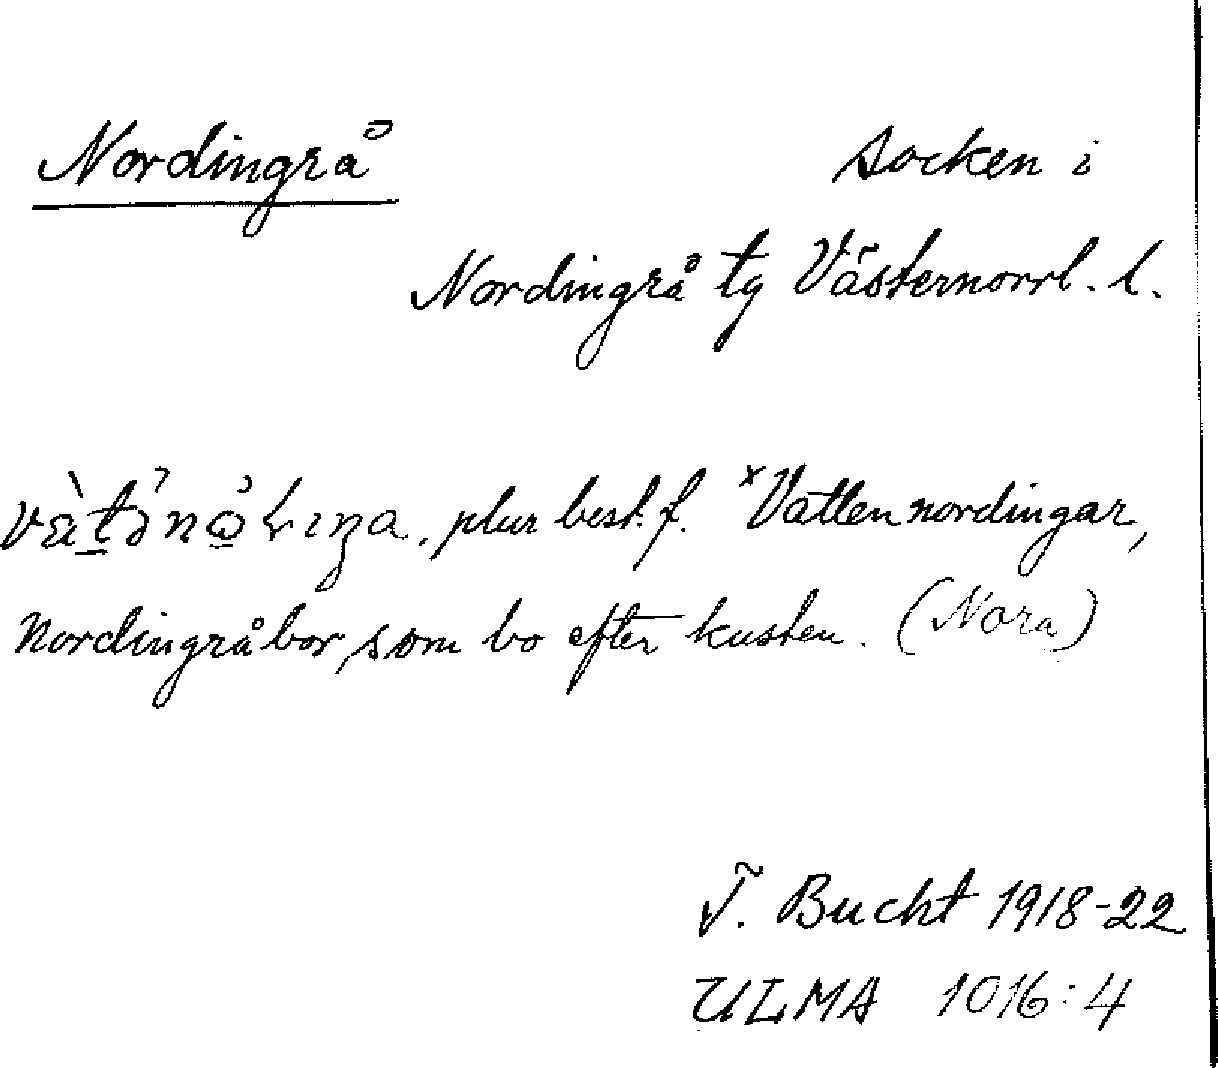 Nordingrå socken i
Nordingrå tg Västernorrl. l.
plur best. f. ˣVattennordingar,
Nordingråbor, som bo efter kusten. (Nora)
T. Bucht 1918-22
ULMA 1016:4